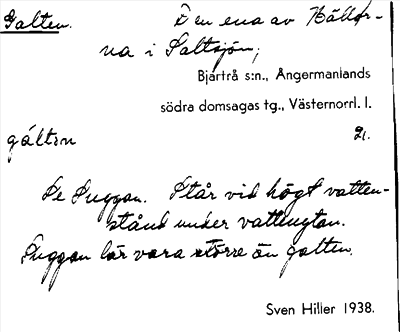 Galten. Den ena av Hällor-
na i Saltsjön;
Bjärtrå s:n., Ångermanlands
södra domsagas tg., Västernorrl. l.
gáltṇ
Se Suggan. Står vid högt vatten-
stånd under vattenytan.
Suggan lär vara större än galten.
Sven Hiller 1938.